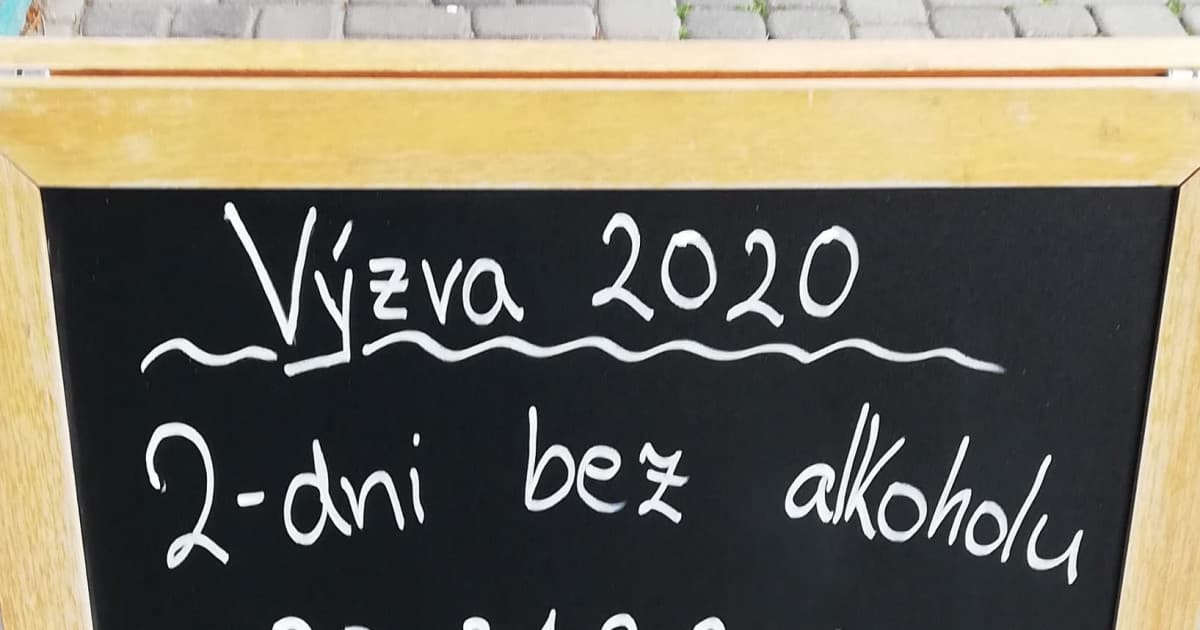 Výzva 2020
2-dni bez alkoholu